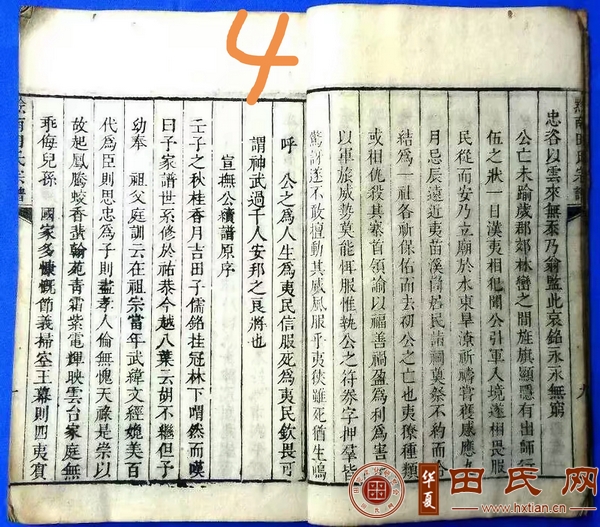 4
忠各以雲來無忝乃翁監此哀銘永永無窮
公亡未踰歲郡郊林巒之間旌旗顯隱有出師行
伍之狀一日漢夷相犯關公引軍入境遂相畏服
民從而安乃立廟於水東旱涼祈禱嘗獲感應九
月忌辰遠近夷苗溪㟖居民請祠奠祭不約而合
結爲一社各祈保佑而去初公之亡也夷獠種類
或相仇殺其寨首領諭以福善禍盈爲利爲害
以軍旅威勢莫能恠服惟執公之符券字押羣皆
驚訝遂不敢擅動其威風服乎夷徒雖死猶生嗚
呼　公之爲人生爲夷民信服死爲夷民欽畏可
謂神武過千人安邦之良將也
宣撫公續譜原序
壬子之秋桂香月吉田子儒銘挂冠林下喟然而嘆
曰子家譜世系修於祐恭今越八葉云胡不繼但子
幼奉　祖父庭訓云在祖宗當年武緯文經媲美百
代爲臣則思忠爲子則盡孝人倫無愧天祿是崇以
故起鳳騰蛟香蜚翰苑青霜紫電輝映雲台家庭無
乖侮兒孫　國家多慷慨節義掃室王幕則四夷賓
黔南田氏宗譜
華夏
田氏网
www.hxtian.cn